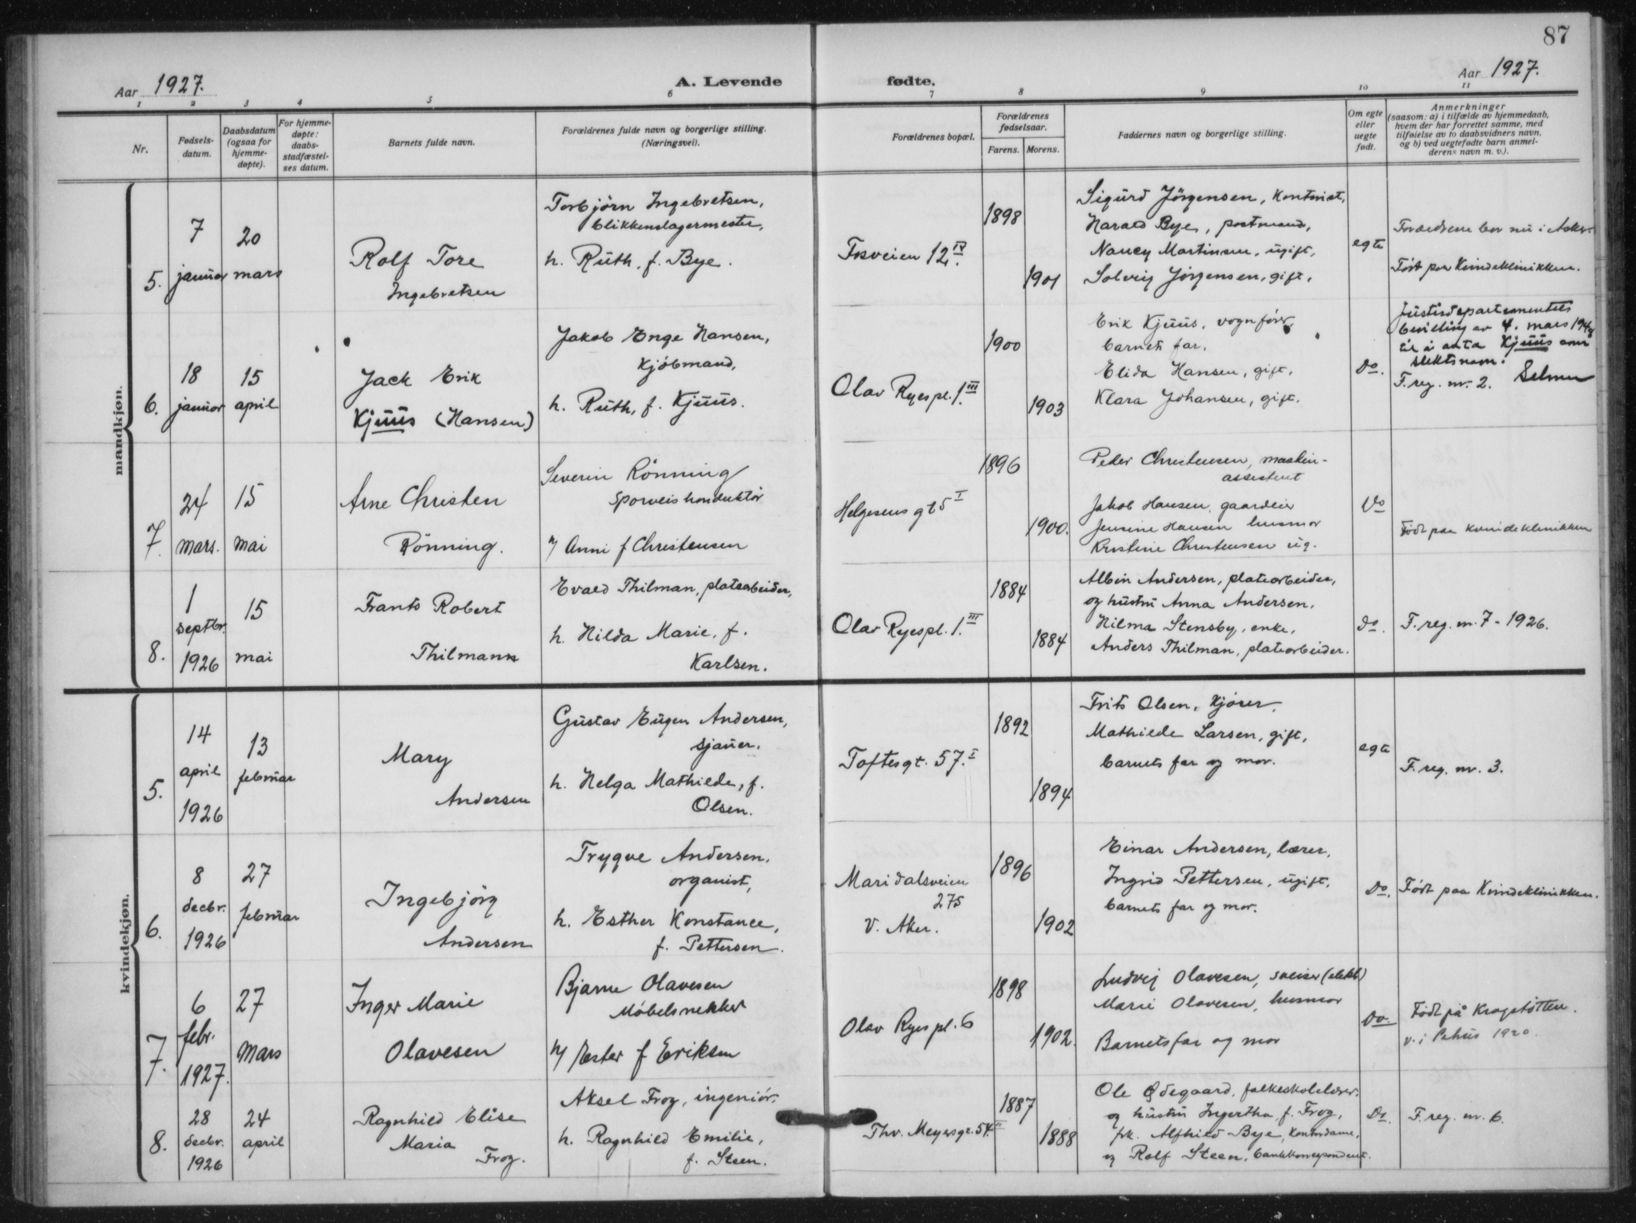 87
Aar 1927.
A. Levende fødte.
Aar 1927.
1 2 3 4 5 6 7 8 9 10 11
Nr.
Fødsels-
datum.
Daabsdatum
(ogsaa for
hjemme-
døpte).
For hjemme-
døpte:
daabs-
stadfæstel-
ses datum.
Barnets fulde navn.
Forældrenes fulde navn og borgerlige stilling.
(Næringsvei).
Forældrenes bopæl.
Forældrenes
fødselsaar.
Farens. Morens.
Faddernes navn og borgerlige stilling.
Om egte
eller
uegte
født.
Anmerkninger
(saasom: a) i tilfælde av hjemmedaab,
hvem der har forrettet samme, med
tilføielse av to daabsvidners navn,
og b) ved uegtefødte barn anmel-
derens navn m. v.).
mandkjøn.
5.
7
januar
20
mars
Rolf Tore
Ingebretsen
Torbjørn Ingebretsen,
blikkenslagermester,
h. Ruth, f. Bye.
Fosveien 12 IV.
1898
1901
Sigurd Jörgensen, kontorist,
Harald Bye, postmand,
Nancy Martinsen, ugift,
Solveig Jörgensen, gift.
egte
Forældrene bor nu i Asker.
Født paa Kvindeklinikken.
6.
18
januar
15
april
Jack Erik
Kjuus (Hansen)
Jakob Enge Hansen,
kjøbmand,
h. Ruth, f. Kjuus.
Olav Ryes pl. 1. III
1900
1903
Erik Kjuus, vognfører,
barnets far.
Elida Hansen, gift.
Klara Johansen, gift.
do.
Justisdepartementets
bevilling av 4. mars
til å anta Kjuus som
slektsnavn.
F. reg. nr. 2. Selmer
7.
24
mars.
15
mai
Arne Christen
Rönning.
Severin Rönning
Sporveiskonduktør
h/ Anni f Christensen
Helgesens gt 5 I
1896
1900.
Peder Christensen, maskin-
assistent
Jakob Hansen, gaardeier
Jensine Hansen husmor
Kristine Christensen ug.
Do
Født paa kvindeklinikken
8.
1
septbr.
1926
15
mai
Frants Robert
Thilmann
Evald Thilman, platearbeider,
h. Hilda Marie, f.
Karlsen.
Olav Ryes pl. 1. III
1884
1884
Albin Andersen, platearbeider,
og hustru Anna Andersen,
Hilma Stensby, enke,
Anders Thilman, platearbeider.
do.
F. reg. nr. 7 - 1926.
kvindekjøn.
5.
14
april
1926
13
februar
Mary
Andersen
Gustav Eugen Andersen,
sjauer.
h. Helga Mathilde, f.
Olsen.
Toftesgt. 57. I
1892
1894
Frits Olsen, kjører,
Mathilde Larsen, gift,
barnets far og mor.
egte
F. reg. nr. 3.
6.
8
decbr.
1926
27
februar
Ingebjörg
Andersen
Trygve Andersen,
organist,
h. Esther Konstance,
f. Pettersen.
Maridalsveien
275
V. Aker.
1896
1902
Einar Andersen, lærer,
Ingrid Pettersen, ugift,
barnets far og mor.
do.
Født paa Kvindeklinikken.
7.
6
febr.
1927.
27
Mars
Inger Marie
Olavesen
Bjarne Olavesen
Møbelsnekker
h/ Ester f Eriksen
Olav Ryes pl. 6
1898
1902.
Ludvig Olavesen, sveiser (elekt)
Marie Olavesen, husmor
Barnets far og mor
Do.
Født på Kragstøtten.
v. i 1920.
8.
28
decbr.
1926
24
april
Ragnhild Elise
Maria
Frog.
Aksel Frog, ingeniör,
h. Ragnhild Emilie,
f. Steen.
Thv. Meyersgt. 54.
1887
1888
Ole Ødegaard, folkeskolelærer,
og hustru Ingertha f. Frog,
frk. Alfhild Bye, kontordame,
og Rolf Steen, bankkorrespondent.
Do.
F. reg. nr. 6.